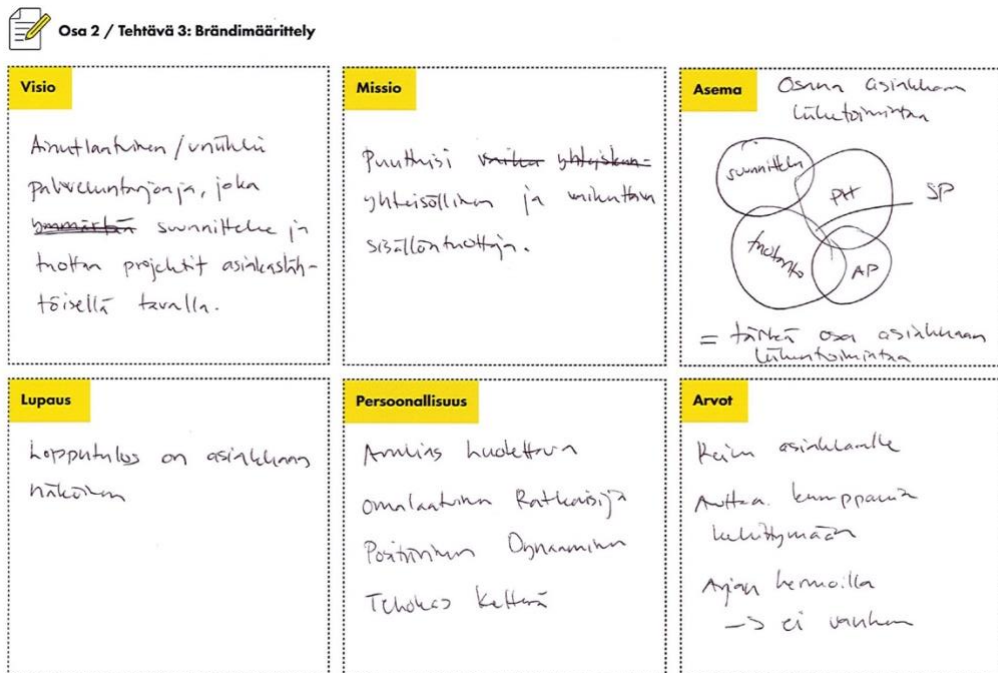 Osa 2 / Tehtävä 3: Brändimäärittely
Visio
Ainutlaatuinen / uniikki
palveluntarjoaja, joka
ymmärtää suunnittelee ja
tuottaa projektit asiakasläh-
töisellä tavalla.
Missio
yhteiskun-
yhteisöllinen ja
sisällöntuottaja.
Asema
Osana asiakkaan
liiketoimintaa
suunnittelu
PH
SP
tuotanto
AP
= tärkeä osa asiakkaan
liiketoimintaa
Lupaus
Lopputulos on asiakkaan
näköinen
Persoonallisuus
Avulias Luotettava
Omalaatuinen Ratkaisija
Positiivinen Dynaaminen
Tehokas Ketterä
Arvot
Reilu asiakkaalle
Auttaa kumppania
kehittymään
Ajan hermoilla
-> ei vanhaa